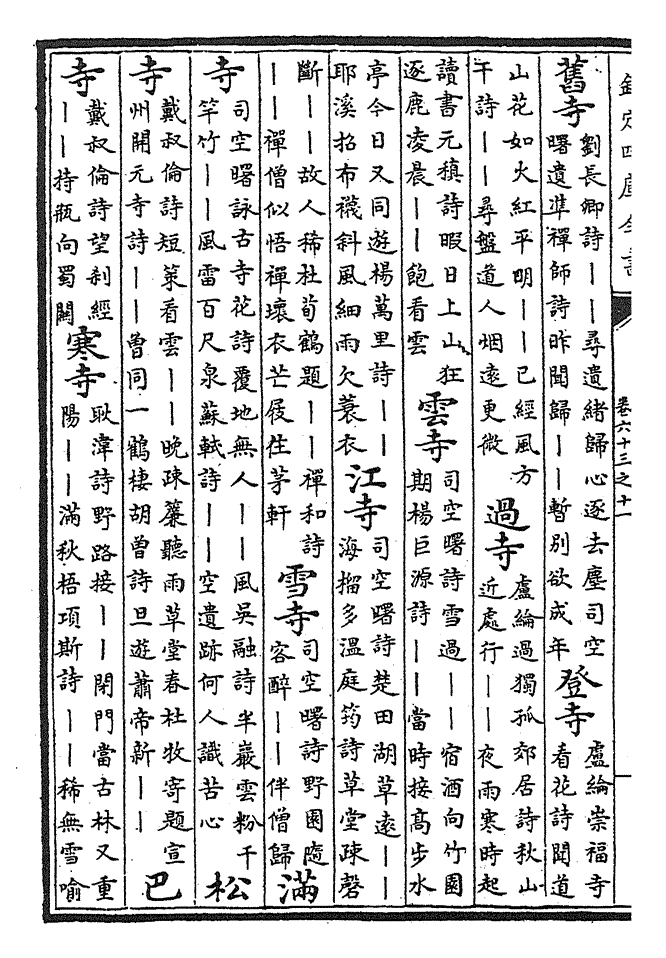 欽定四庫全書
卷六十三之十一
舊寺
劉長卿詩丨丨尋遺緒歸心逐去塵司空
曙遺準禪師詩昨聞歸丨丨暫別欲成年
登寺
盧綸崇福寺
看花詩聞道
山花如火紅平明丨丨已經風方
干詩丨丨尋盤道人烟遠更微
過寺
盧綸過獨孤郊居詩秋山
近處行丨丨夜雨寒時起
讀書元稹詩暇日上山狂
逐鹿凌晨丨丨飽看雲
雲寺
司空曙詩雪過丨丨宿酒向竹園
期楊巨源詩丨丨當時接高步水
亭今日又同遊楊萬里詩丨丨
耶溪招布襪斜風細雨欠蓑衣
江寺
司空曙詩楚田湖草遠丨丨
海榴多溫庭筠詩草堂疎磬
斷丨丨故人稀杜荀鶴題丨丨禪和詩
丨丨禪僧似悟禪壞衣芒屐住茅軒
雪寺
司空曙詩野園隨
客醉丨丨伴僧歸
滿
寺
司空曙詠古寺花詩覆地無人丨丨風吳融詩半巖雲粉千
竿竹丨丨風雷百尺泉蘇軾詩丨丨空遺跡何人識苦心
松
寺
戴叔倫詩短策看雲丨丨晚疎簾聽雨草堂春杜牧寄題宣
州開元寺詩丨丨曾同一鶴棲胡曾詩旦遊蕭帝新丨丨
巴
寺
戴叔倫詩望刹經
丨丨持瓶向蜀關
寒寺
耿湋詩野路接丨丨閉門當古林又重
陽丨丨滿秋梧項斯詩丨丨稀無雪喻